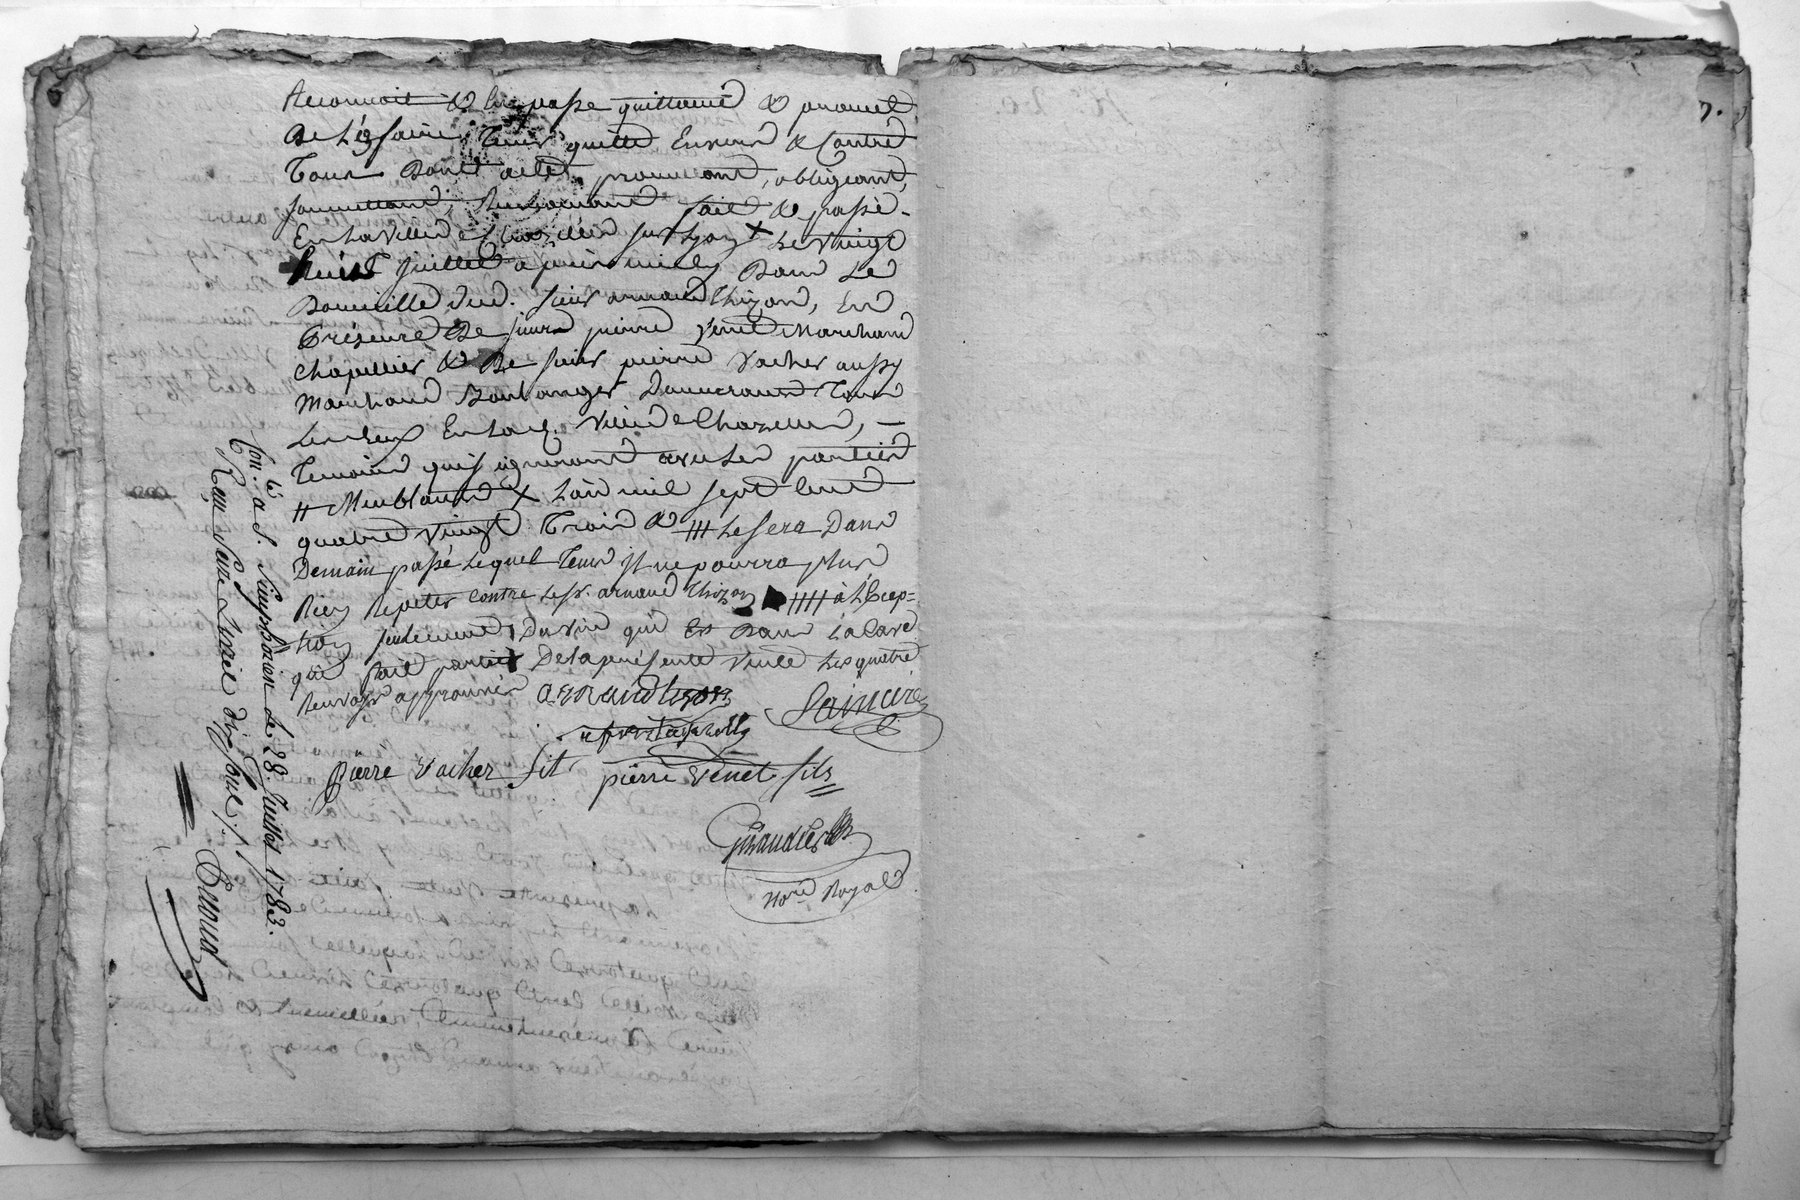 Reconnoit & luy passe quittance & promet
De L'en faire Tenir quitte Envers & Contre
Tous Dont acte, promettant, obligeant,
soumettant, Renonçant fait & passé
En La Ville de Chazelles sur Lyon X Le Vingt
huit Juillet apres midy Dans Le
Domicille dud. sieur arnaud Thizon, En
Présence De sieurs pierre Venet Marchand
Chapellier & De sieur pierre Vacher aussy
Marchand Boulanger Demeurants Tous
Les deux En Lad. Ville de Chazelles,
Temoins qui signeront avec Les parties
# Meublants X L'an mil sept Cent
quatre Vingt Trois & ### Le fera Dans
Demain passé Lequel Tems il ne pourra plus
Rien Répeter contre Le sr. arnaud Thizon #### à L'Excep=
tion seulement Du vin qui Est Dans La Cave
qui fait partie De la présente Vente Les quatre
Renvoys approuvés arnaud tizon
Pierre Vacher fils pierre venet fils
Giraudier
Nore. Royal
7.
Con.lé a S. Simphorien Le 28. Juillet 1783.
Reçu Seize Livres dix sols ./.